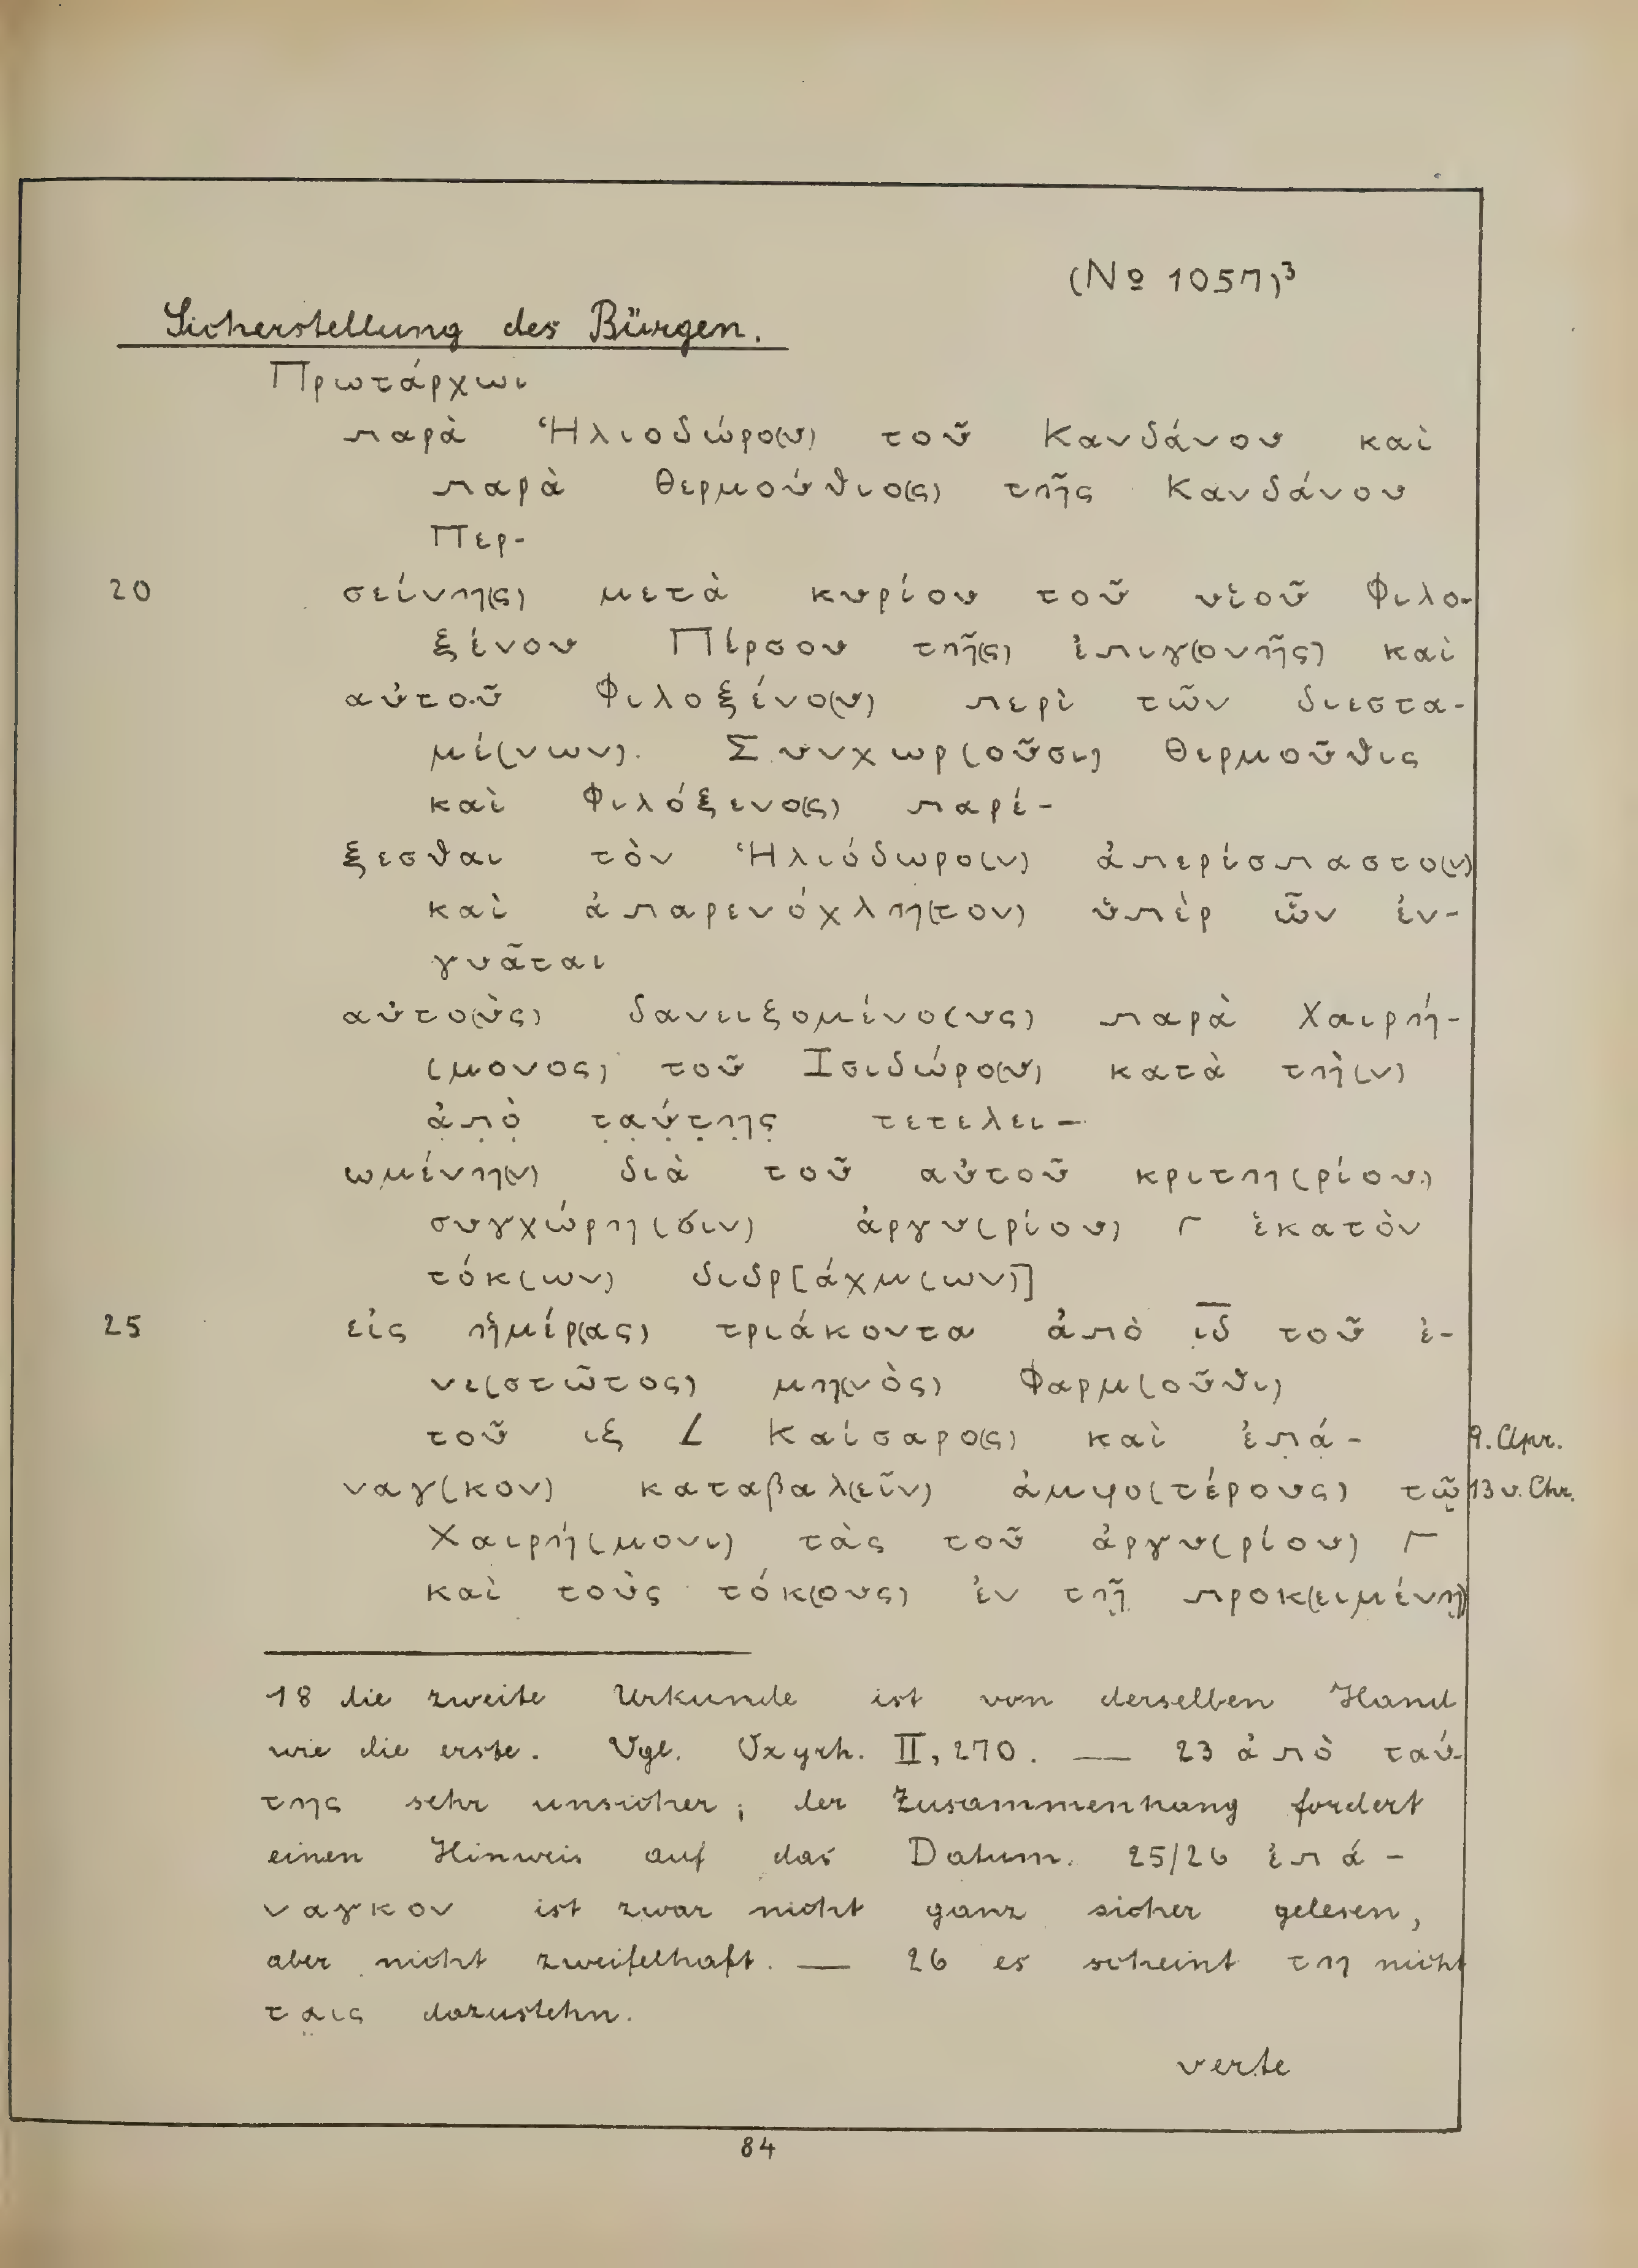 (Nº 1057)³
Sicherstellung des Bürgen.
Πρωτάρχωι
παρὰ Ἡλιοδώρο(υ) τοῦ Κανδάνου καὶ
παρὰ Θερμούθιο(ς) τῆς Κανδάνου
Περ-
20 σείνη(ς) μετὰ κυρίου τοῦ υἱοῦ Φιλο-
ξένου Πέρσου τῆ(ς) ἐπιγ(ονῆς) καὶ
αὐτοῦ Φιλοξένο(υ) περὶ τῶν διεστα-
μέ(νων). Συνχωρ(οῦσι) Θερμοῦθις
καὶ Φιλόξενο(ς) παρέ-
ξεσθαι τὸν Ἡλιόδωρο(ν) ἀπερίσπαστο(ν)
καὶ ἀπαρενόχλη(τον) ὑπὲρ ὧν ἐν-
γυᾶται
αὐτο(ὺς) δανειξομένο(υς) παρὰ Χαιρή-
(μονος) τοῦ Ἰσιδώρο(υ) κατὰ τὴ(ν)
ἀ̣π̣ὸ̣ τ̣α̣ύ̣τ̣η̣ς̣ τετελει-
ωμένη(ν) διὰ τοῦ αὐτοῦ κριτη(ρίου)
συγχώρη(σιν) ἀργυ(ρίου) 𐅂 ἑκατὸν
τόκ(ων) διδρ[άχμ(ων)]
25 εἰς ἡμέρ(ας) τριάκοντα ἀπὸ ι̅δ̅ τοῦ ἐ-
νε(στῶτος) μη(νὸς) Φαρμ(οῦθι)
τοῦ ιξ L Καίσαρο(ς) καὶ ἐπ̣ά̣- 9. Apr.
ναγ(κον) καταβαλ(εῖν) ἀμφο(τέρους) τῷ 13 v. Chr.
Χαιρή(μονι) τὰς τοῦ ἀργυ(ρίου) 𐅂
καὶ τοὺς τόκ(ους) ἐν τῇ προκ(ειμένῃ)
18 die zweite Urkunde ist von derselben Hand
wie die erste. Vgl. Oxyrh. II, 270. — 23 ἀπὸ ταύ-
της sehr unsicher; der Zusammenhang fordert
einen Hinweis auf das Datum. 25/26 ἐπά-
ναγκον ist zwar nicht ganz sicher gelesen,
aber nicht zweifelhaft. — 26 es scheint τη nicht
τα̣ι̣ς dazustehn.
verte
84